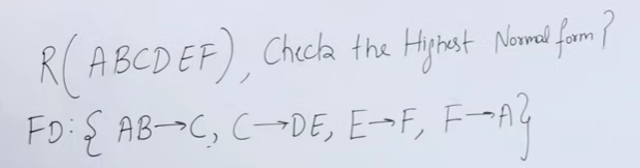 R(ABCDEF), Check the Highest Normal form?
FD:{ AB→C, C→DE, E→F, F→A}